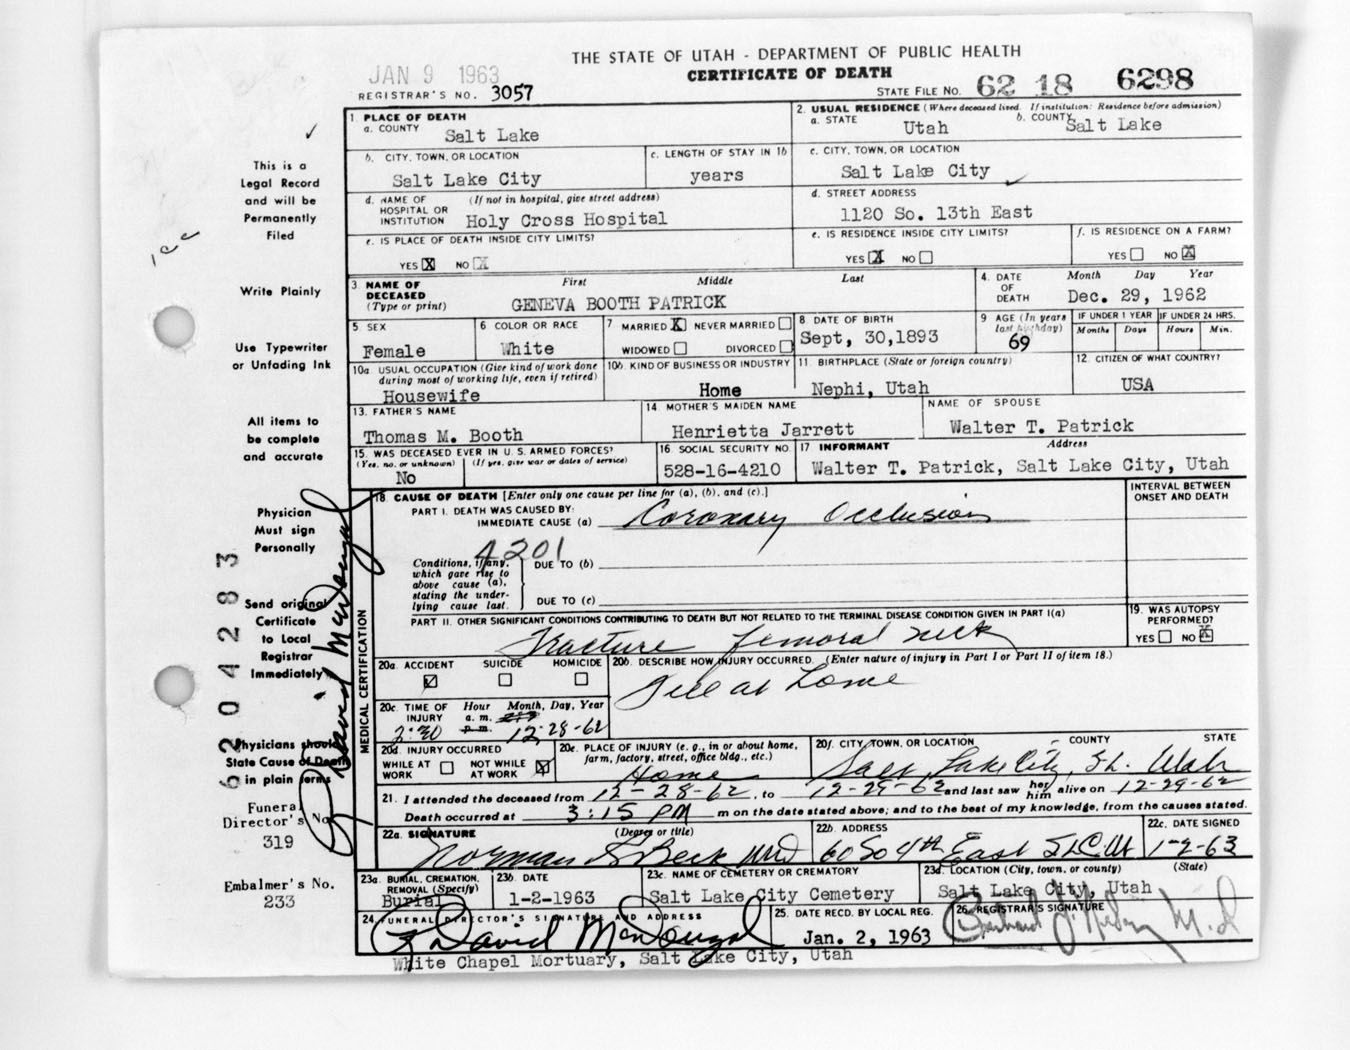 THE STATE OF UTAH - DEPARTMENT OF PUBLIC HEALTH
CERTIFICATE OF DEATH
JAN 9 1963
REGISTRAR'S NO. 3057
STATE FILE NO. 62 18 6298
1. PLACE OF DEATH
a. COUNTY Salt Lake
2. USUAL RESIDENCE (Where deceased lived. If institution: Residence before admission)
a. STATE Utah b. COUNTY Salt Lake
b. CITY, TOWN, OR LOCATION Salt Lake City
c. LENGTH OF STAY IN 1b years
c. CITY, TOWN, OR LOCATION Salt Lake City
d. NAME OF HOSPITAL OR INSTITUTION (If not in hospital, give street address) Holy Cross Hospital
d. STREET ADDRESS 1120 So. 13th East
e. IS PLACE OF DEATH INSIDE CITY LIMITS? YES X NO X
e. IS RESIDENCE INSIDE CITY LIMITS? YES X NO
f. IS RESIDENCE ON A FARM? YES NO X
3. NAME OF DECEASED (Type or print) First Middle Last
GENEVA BOOTH PATRICK
4. DATE OF DEATH Month Day Year
Dec. 29, 1962
5. SEX Female
6 COLOR OR RACE White
7 MARRIED X NEVER MARRIED
WIDOWED DIVORCED
8 DATE OF BIRTH Sept, 30,1893
9 AGE (In years last birthday) 69
IF UNDER 1 YEAR Months Days
IF UNDER 24 HRS. Hours Min.
10a. USUAL OCCUPATION (Give kind of work done during most of working life, even if retired) Housewife
10b. KIND OF BUSINESS OR INDUSTRY Home
11. BIRTHPLACE (State or foreign country) Nephi, Utah
12. CITIZEN OF WHAT COUNTRY? USA
13. FATHER'S NAME Thomas M. Booth
14. MOTHER'S MAIDEN NAME Henrietta Jarrett
NAME OF SPOUSE Walter T. Patrick
15. WAS DECEASED EVER IN U. S. ARMED FORCES?
(Yes, no. or unknown) (If yes, give war or dates of service)
No
16. SOCIAL SECURITY NO. 528-16-4210
17 INFORMANT Address
Walter T. Patrick, Salt Lake City, Utah
18. CAUSE OF DEATH [Enter only one cause per line for (a), (b), and (c).]
INTERVAL BETWEEN ONSET AND DEATH
PART I. DEATH WAS CAUSED BY:
IMMEDIATE CAUSE (a) Coronary Occlusion
4201
Conditions, if any, which gave rise to above cause (a), stating the underlying cause last.
DUE TO (b)
DUE TO (c)
PART II. OTHER SIGNIFICANT CONDITIONS CONTRIBUTING TO DEATH BUT NOT RELATED TO THE TERMINAL DISEASE CONDITION GIVEN IN PART I(a)
Fracture femoral neck
19. WAS AUTOPSY PERFORMED? YES NO X
20a. ACCIDENT SUICIDE HOMICIDE
20b. DESCRIBE HOW INJURY OCCURRED. (Enter nature of injury in Part I or Part II of item 18.)
Fell at home
20c. TIME OF INJURY Hour a. m. p. m. Month, Day, Year
2:30 12-28-62
20d. INJURY OCCURRED
WHILE AT WORK NOT WHILE AT WORK X
20e. PLACE OF INJURY (e. g., in or about home, farm, factory, street, office bldg., etc.)
Home
20f. CITY, TOWN, OR LOCATION COUNTY STATE
Salt Lake City, S.L. Utah
21. I attended the deceased from 12-28-62, to 12-29-62 and last saw her him alive on 12-29-62
Death occurred at 3:15 PM m on the date stated above; and to the best of my knowledge, from the causes stated.
22a. SIGNATURE (Degree or title) Norman S Beck MD
22b. ADDRESS 60 So 4th East SLC Ut
22c. DATE SIGNED 1-2-63
23a. BURIAL, CREMATION, REMOVAL (Specify) Burial
23b. DATE 1-2-1963
23c. NAME OF CEMETERY OR CREMATORY Salt Lake City Cemetery
23d. LOCATION (City, town, or county) (State)
Salt Lake City, Utah
24. FUNERAL DIRECTOR'S SIGNATURE AND ADDRESS
David MacDougal
White Chapel Mortuary, Salt Lake City, Utah
25. DATE RECD. BY LOCAL REG. Jan. 2, 1963
26. REGISTRAR'S SIGNATURE
M.D
MEDICAL CERTIFICATION
David MacDougal
62 04283
This is a
Legal Record
and will be
Permanently
Filed
Write Plainly
Use Typewriter
or Unfading Ink
All items to
be complete
and accurate
Physician
Must sign
Personally
Send original
Certificate
to Local
Registrar
Immediately
Physicians should
State Cause of Death
in plain terms
Funeral
Director's No.
319
Embalmer's No.
233